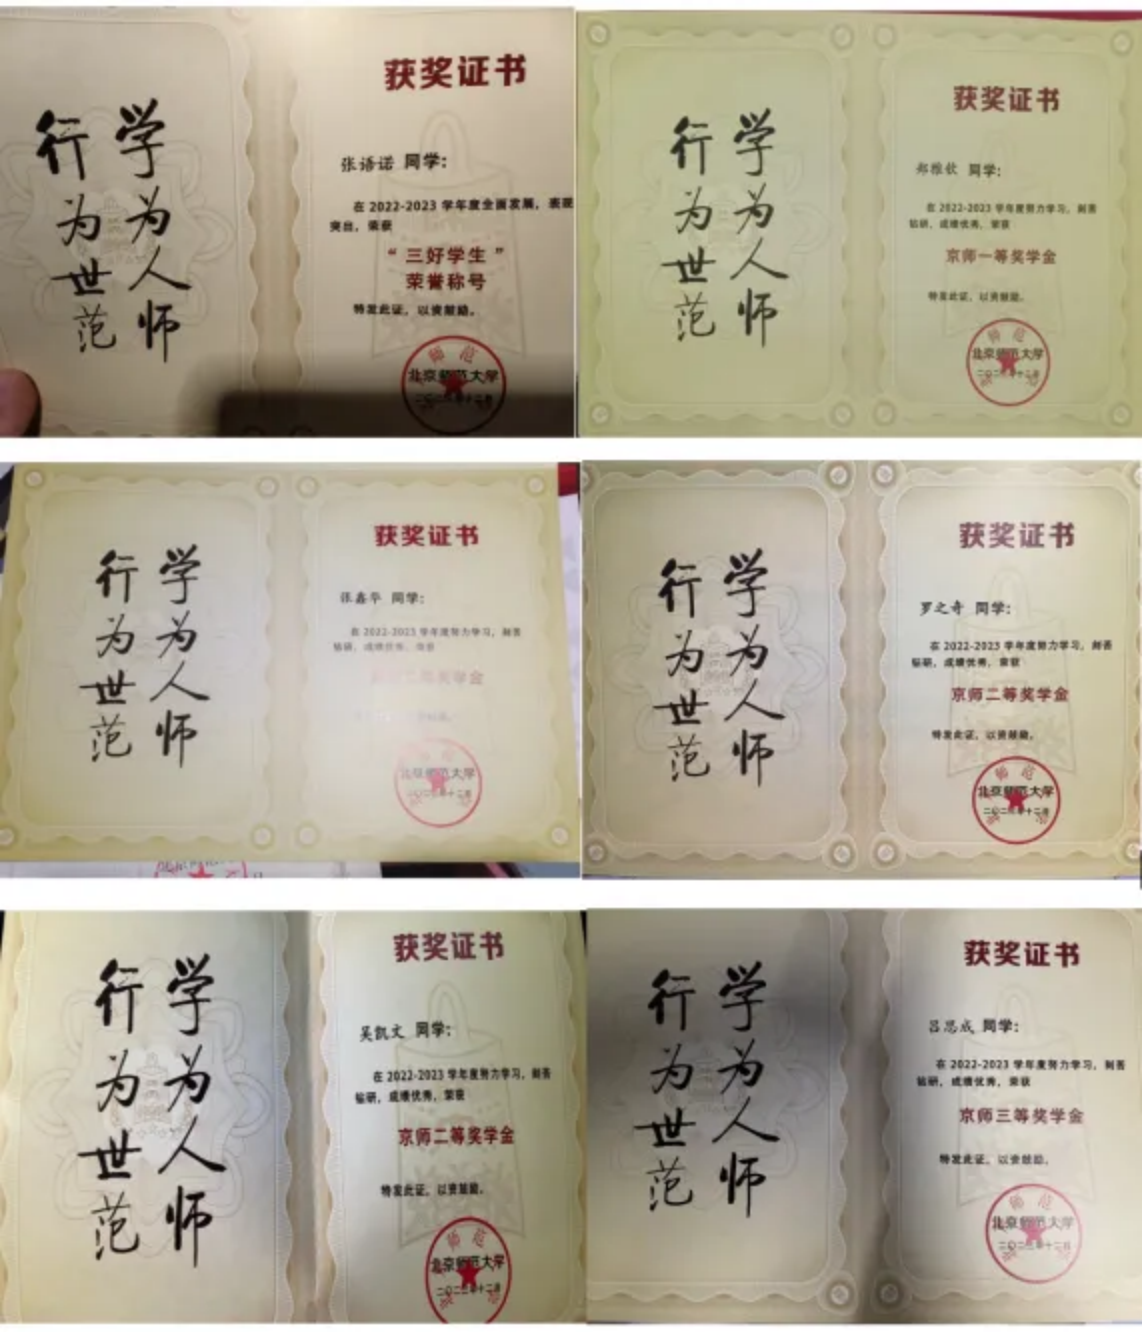 学为人师
行为世范
获奖证书
张语诺 同学：
在 2022-2023 学年度全面发展，表现
突出，荣获
“三好学生”
荣誉称号
特发此证，以资鼓励。
北京师范大学
二〇二三年十二月
学为人师
行为世范
获奖证书
郑雅钦 同学：
在 2022-2023 学年度努力学习，刻苦
钻研，成绩优秀，荣获
京师一等奖学金
特发此证，以资鼓励。
北京师范大学
二〇二三年十二月
学为人师
行为世范
获奖证书
张鑫华 同学：
在 2022-2023 学年度努力学习，刻苦
钻研，成绩优秀，荣获
等奖学金
北京师范大学
二〇二三年十二月
学为人师
行为世范
获奖证书
罗之奇 同学：
在 2022-2023 学年度努力学习，刻苦
钻研，成绩优秀，荣获
京师二等奖学金
特发此证，以资鼓励。
北京师范大学
二〇二三年十二月
学为人师
行为世范
获奖证书
吴凯文 同学：
在 2022-2023 学年度努力学习，刻苦
钻研，成绩优秀，荣获
京师二等奖学金
特发此证，以资鼓励。
北京师范大学
二〇二三年十二月
学为人师
行为世范
获奖证书
吕思成 同学：
在 2022-2023 学年度努力学习，刻苦
钻研，成绩优秀，荣获
京师三等奖学金
特发此证，以资鼓励。
北京师范大学
二〇二三年十二月